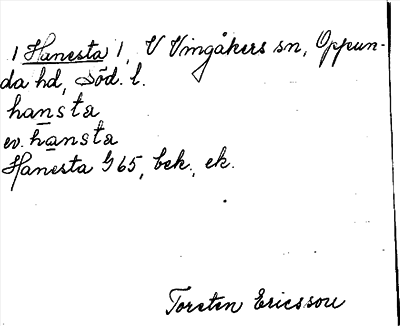 1 Hanesta 1, V Vingåkers sn, Oppun-
da hd, Söd. l.
hansta
ev. hansta
Hanesta G 65, bek., ek.
Torsten Ericsson